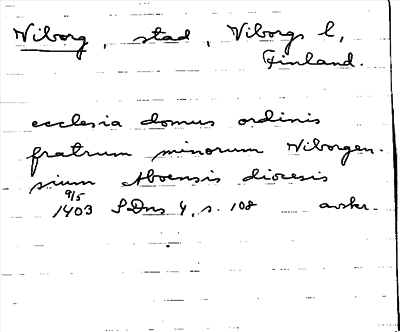 Viborg, stad, Viborgs l,
Finland.
ecclesia domus ordinis
fratrum minorum Wiborgen-
sium Aboensis diocesis
9/5
1403 SDns 4, s. 108 avskr.